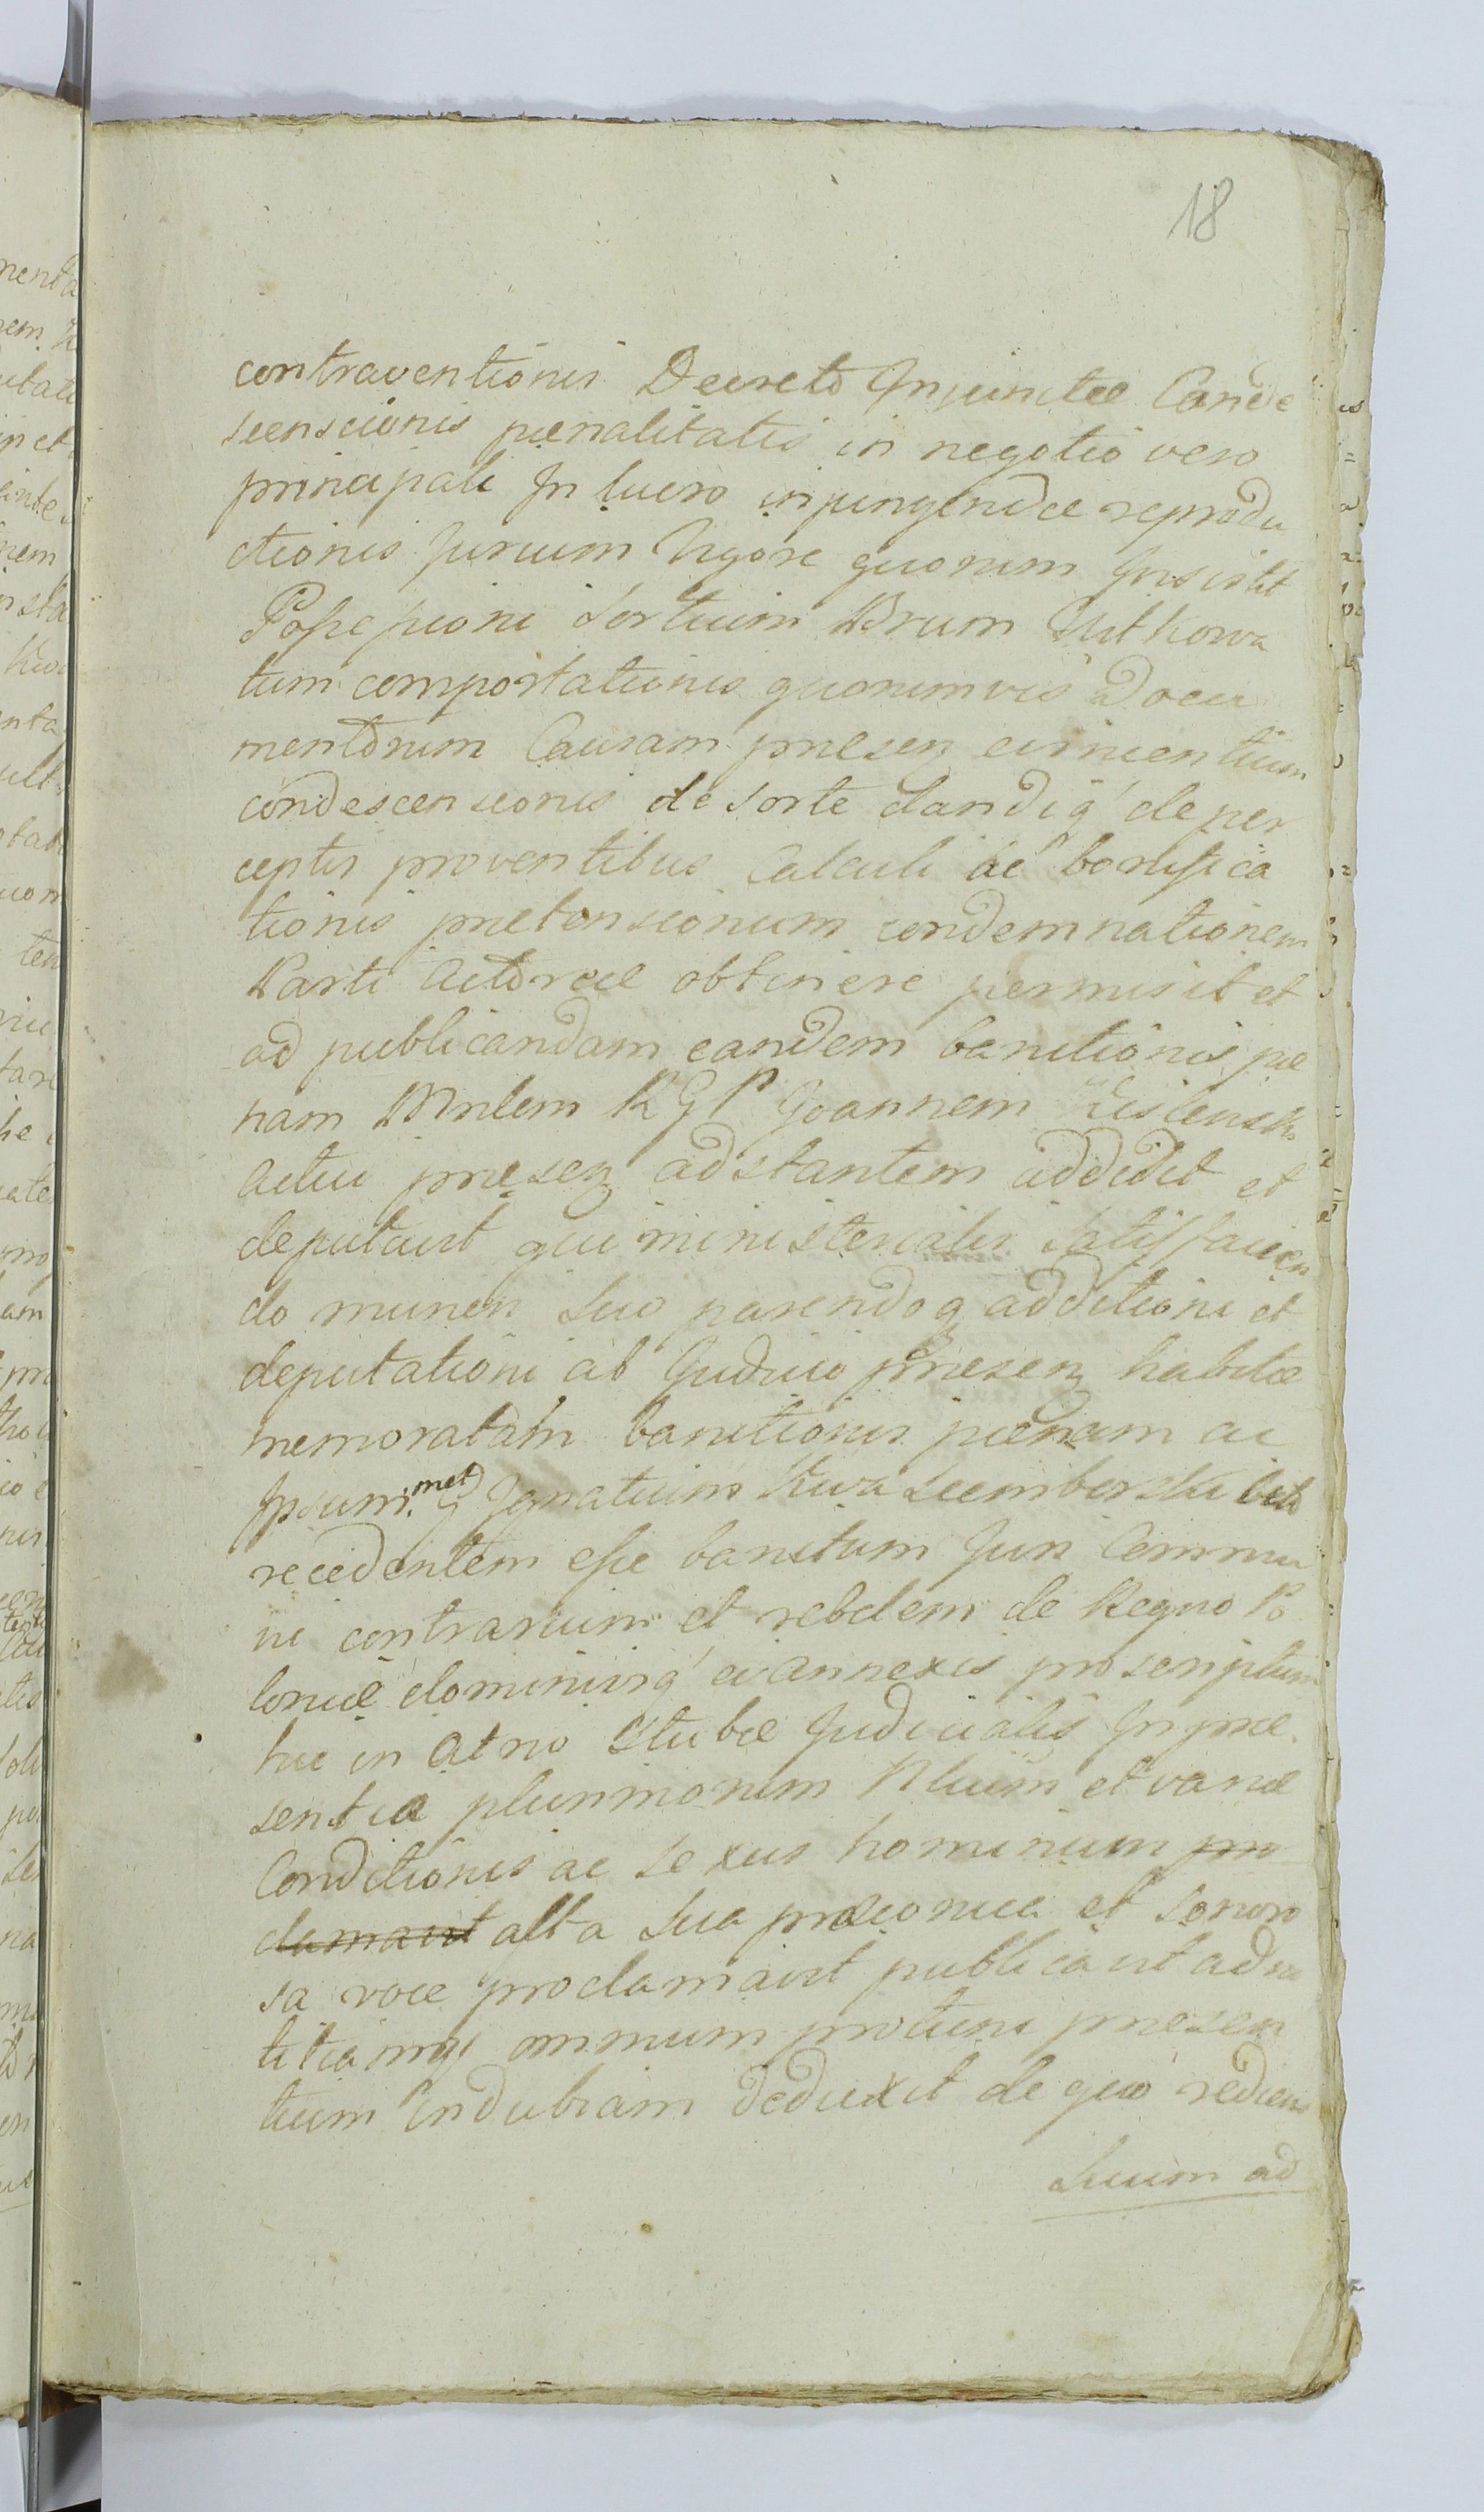 18
contraventionis Decreto Injunctæ Conde
scenscionis pœnalitatis in negotio vero
principali In lucro injungendæ reprodu
ctionis Jurium Vigore quorum Insistit
Possessioni Sortium Brum Witkowa
tum comportationis quorumvis Docu
mentorum Causam præsenz evincentium
condescensionis de sorte dandiq́ de per
ceptis proventibus Calculi ac bonifica
tionis prætensionum condemnationem
Parti Actoreæ obtinere permisit et
ad publicandam eandem banitionis pœ
nam Mnlem R G P Joannem
actui præsenz adstantem addidit et
deputavit qui ministerialis satisfacien
do muneri suo parendoq additioni et
deputationi ab Judicio præsenz habitæ
memoratam banitionis pœnam ac
Ipsum met G Ignatium
recedentem esse banitum Juri Commu
ni contrarium et rebelem de Regno Po
loniæ dominiisq́ ei annexis proscriptum
hic in atrio Stubæ Judicialis In præ
sentia plurimorum Nlium et variæ
Conditionis ac sexus hominum pro
clamavit alta sua præconica et sonoro
sa voce proclamavit publicavit ad no
titiamq́ omnium protunc præsen
tium indubiam deduxit de quo rediens
Suum ad